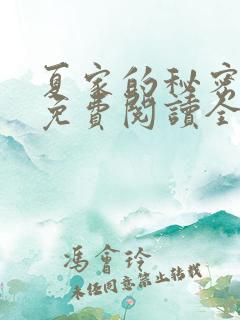 夏家的秘密
免費閱讀全
馮會玲
未經同意禁止轉載